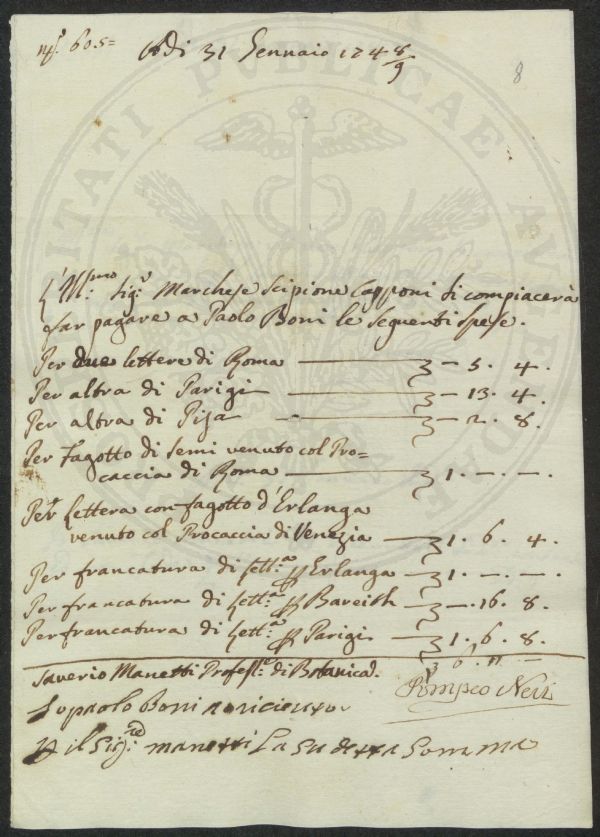 nº. 605=
Adi 31 Gennaio 1748/9
8
L'Ill:mo Sig:r Marchese Scipione Capponi si compiacerà
far pagare a Paolo Boni le seguenti spese.
Per due lettere di Roma — — 5. 4.
Per altra di Parigi — — 13. 4.
Per altra di Pisa — — 2. 8.
Per Fagotto di semi venuto col Pro=
caccia di Roma — 1. —. —.
Per Lettera con fagotto d'Erlanga
venuto col Procaccia di Venezia — 1. 6. 4.
Per francatura di Lett:a Erlanga — 1. —. —.
Per francatura di Lett:a Bareith — —. 16. 8.
Per francatura di Lett:a Parigi — 1. 6. 8.
6. 11. —
Saverio Manetti Profess:e di Botanica.
Pompeo Neri
Io paolo Boni o ricieuto
il Sig:re manetti La su detta Somma
PUBLICAE